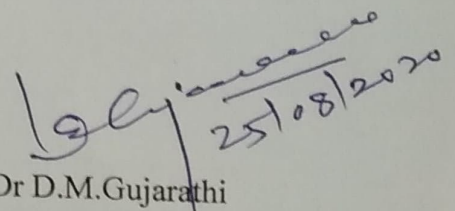 25/08/2020
Dr D.M.Gujarathi